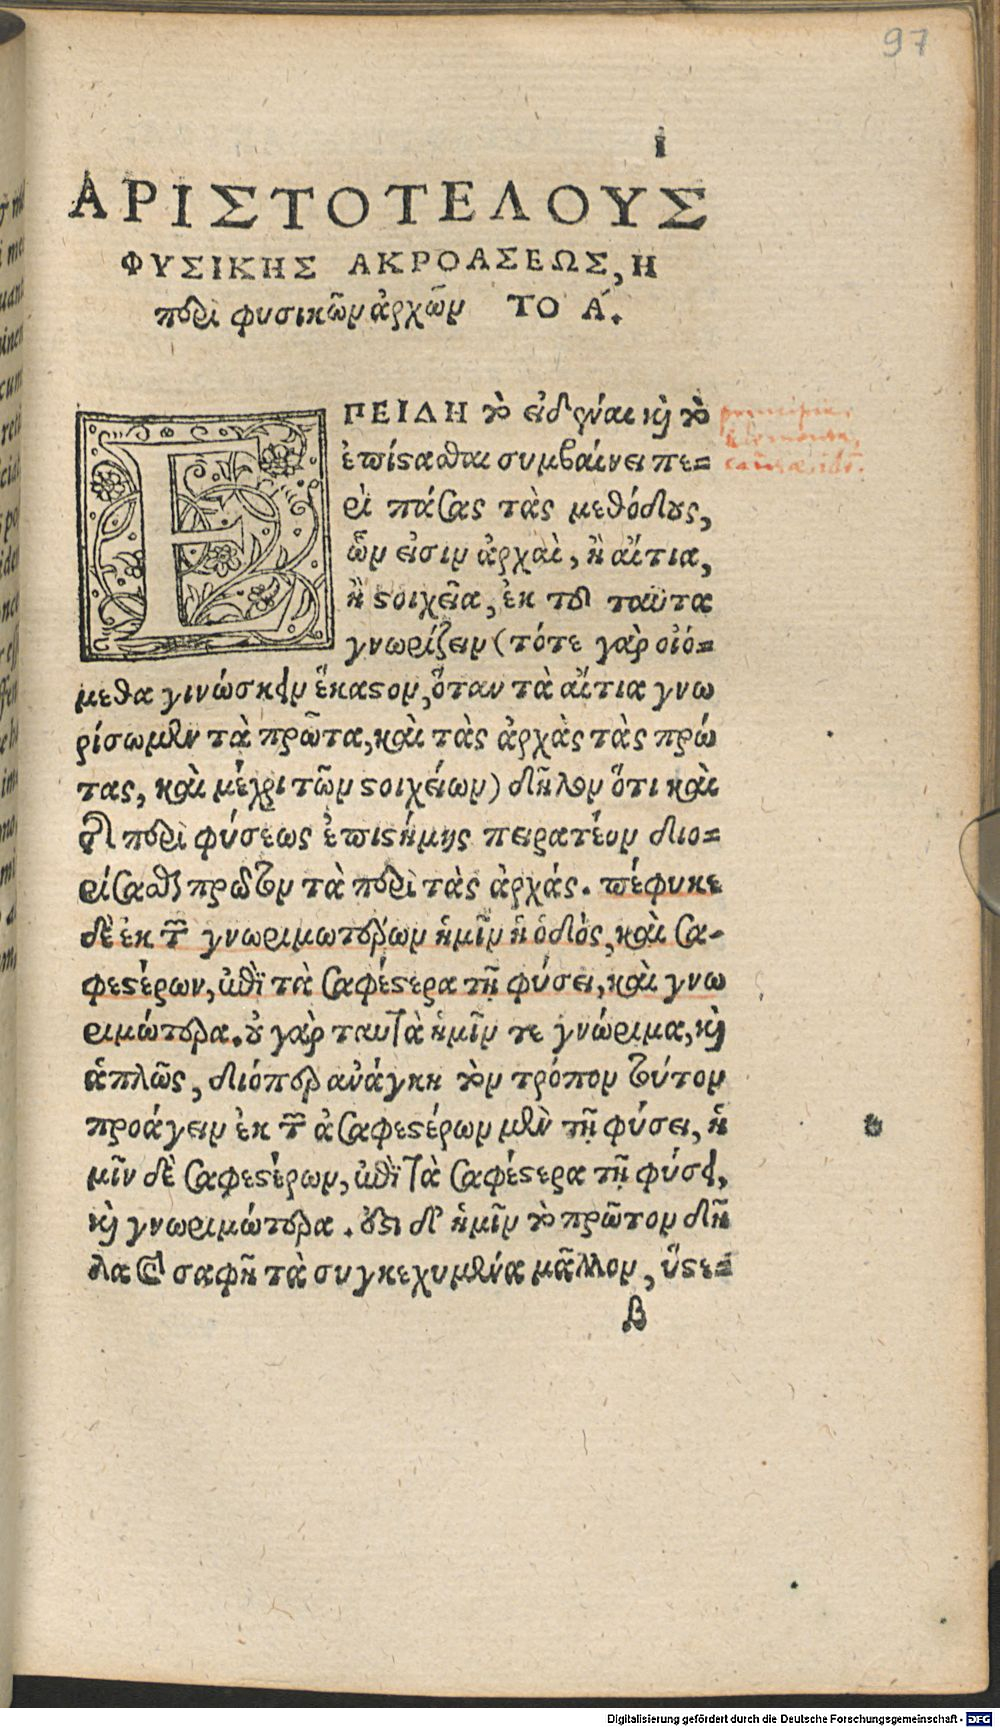 97
1
ΑΡΙΣΤΟΤΕΛΟΥΣ
ΦΥΣΙΚΗΣ ΑΚΡΟΑΣΕΩΣ, Η
περὶ φυσικῶν ἀρχῶν ΤΟ Α.
ΕΠΕΙΔΗ τὸ εἰδέναι κὶ τὸ
ἐπίστασθαι συμβαίνει πε=
ρὶ πάσας τὰς μεθόδους,
ὧν εἰσιν ἀρχαὶ, ἢ αἴτια,
ἢ στοιχεῖα, ἐκ τοῦ ταῦτα
γνωρίζειν (τότε γὰρ οἰό=
μεθα γινώσκειν ἕκαστον, ὅταν τὰ αἴτια γνω
ρίσωμεν τὰ πρῶτα, καὶ τὰς ἀρχὰς τὰς πρώ
τας, καὶ μέχρι τῶν στοιχείων) δῆλον ὅτι καὶ
τῆς περὶ φύσεως ἐπιστήμης πειρατέον διο=
ρίσασθαι πρῶτον τὰ περὶ τὰς ἀρχάς. πέφυκε
δὲ ἐκ τῶν γνωριμωτέρων ἡμῖν ἡ ὁδὸς, καὶ σα-
φεστέρων, ἐπὶ τὰ σαφέστερα τῇ φύσει, καὶ γνω
ριμώτερα. οὐ γὰρ ταυτὰ ἡμῖν τε γνώριμα, κὶ
ἁπλῶς, διόπερ ἀνάγκη τὸν τρόπον τοῦτον
προάγειν ἐκ τῶν ἀσαφεστέρων μὲν τῇ φύσει, ἡ
μῖν δὲ σαφεστέρων, ἐπὶ τὰ σαφέστερα τῇ φύσει,
κὶ γνωριμώτερα. ἔστι δ' ἡμῖν τὸ πρῶτον δῆ
λα καὶ σαφῆ τὰ συγκεχυμένα μᾶλλον, ὕστε=
β
Digitalisierung gefördert durch die Deutsche Forschungsgemeinschaft - DFG